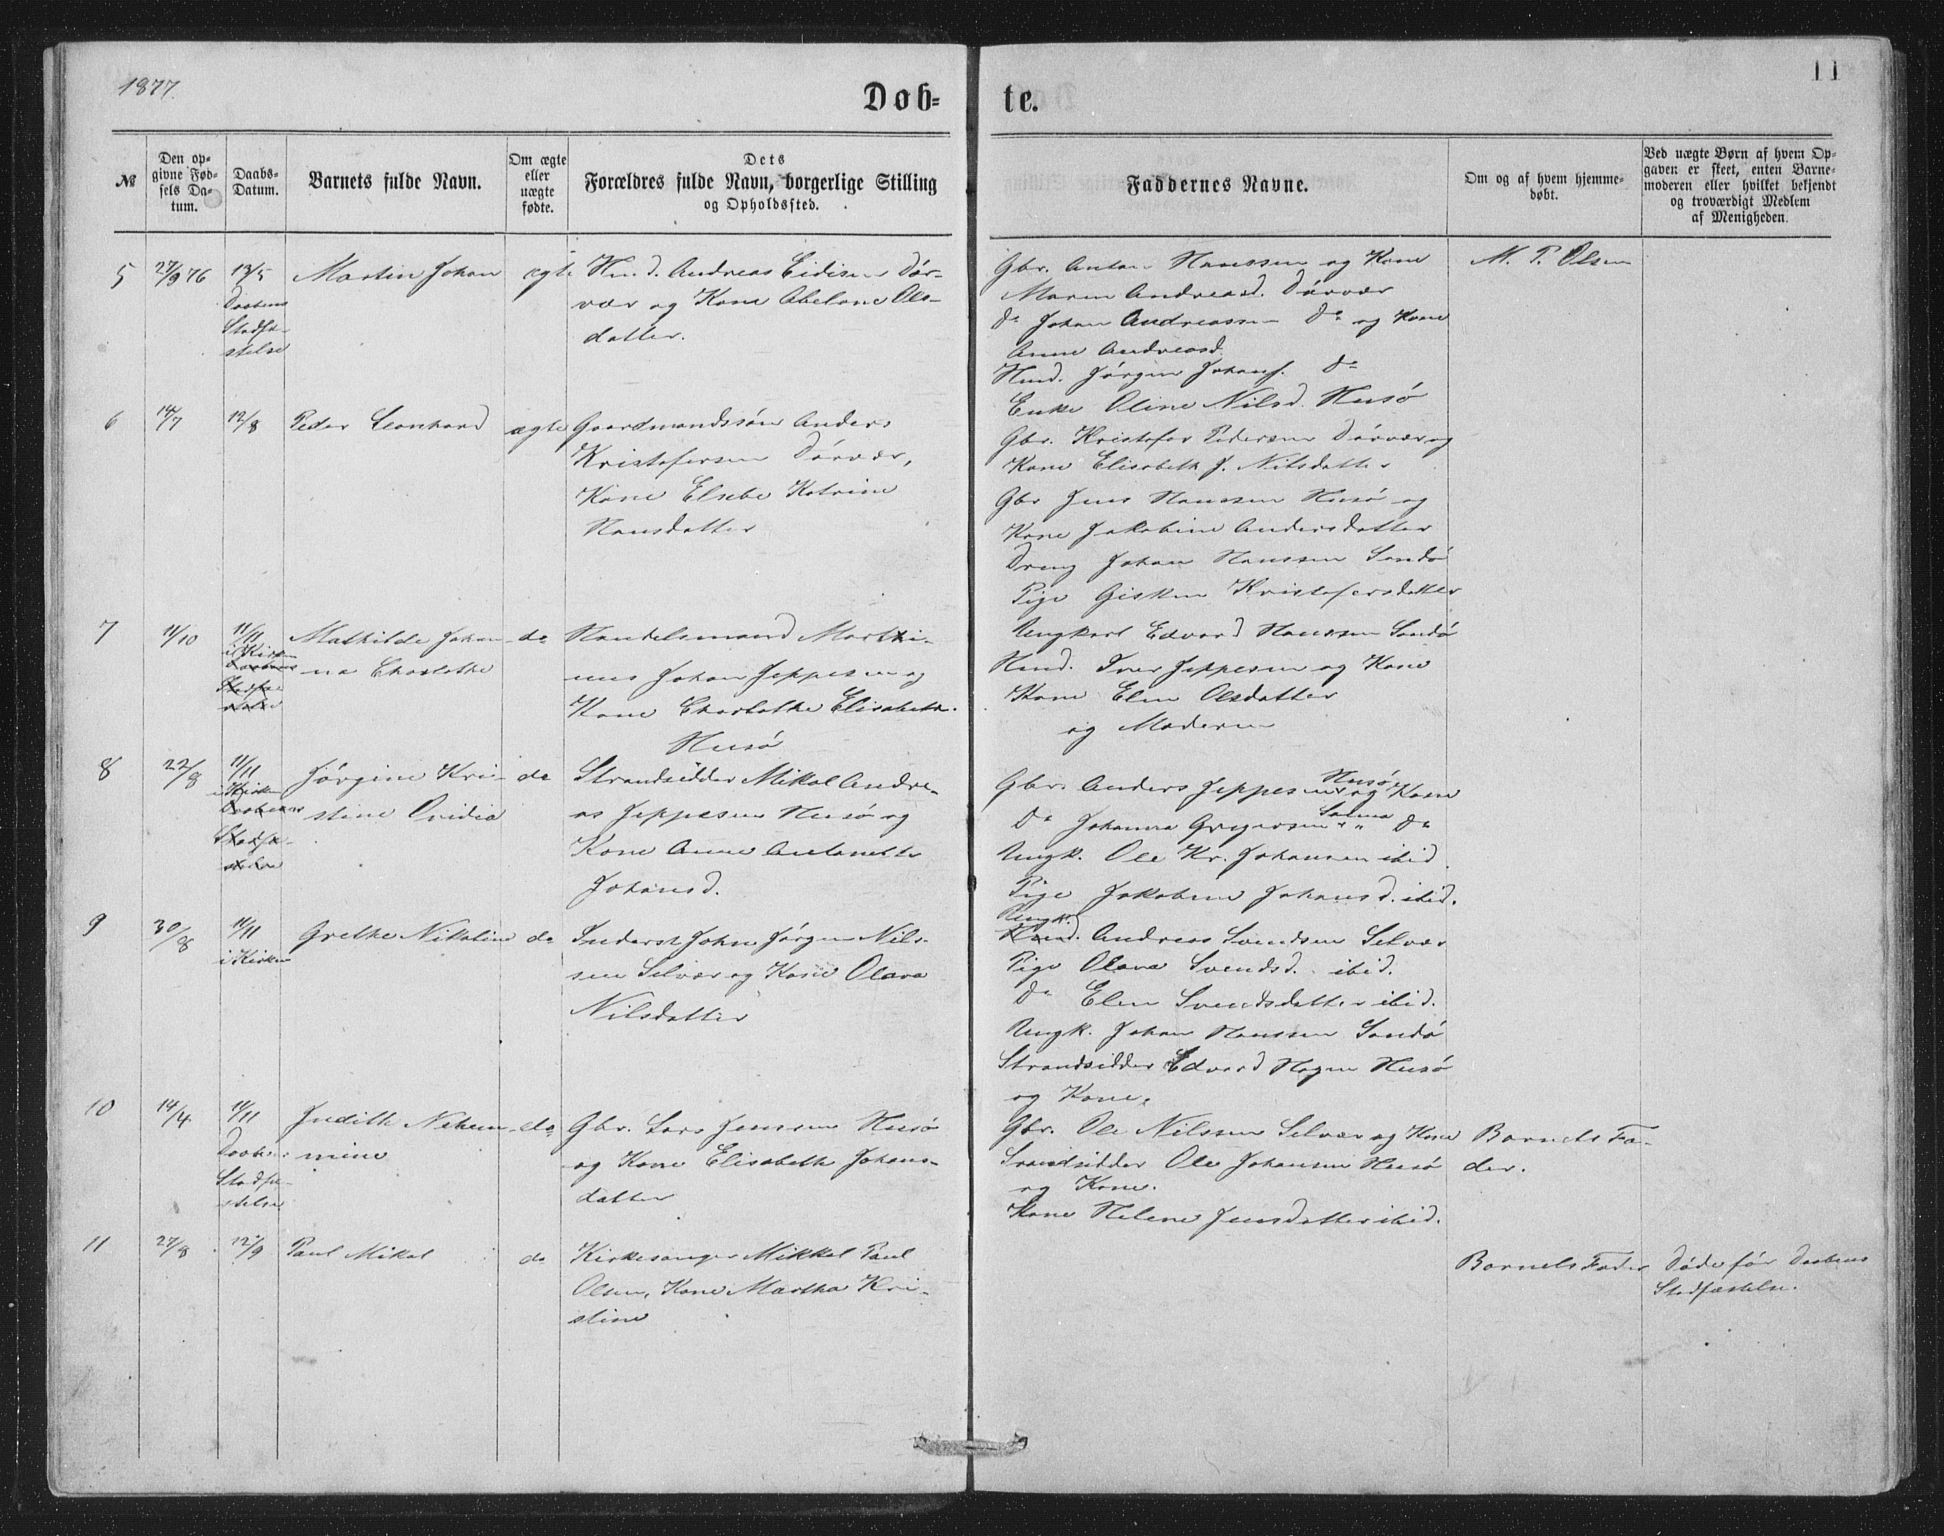 1877.
11
Døb-
te.
№
Den op-
givne Fød-
sels Da-
tum.
Daabs-
Datum.
Barnets fulde Navn.
Om ægte
eller
uægte
fødte.
Dets
Forældres fulde Navn, borgerlige Stilling
og Opholdssted.
Faddernes Navne.
Om og af hvem hjemme-
døbt.
Ved uægte Børn af hvem Op-
gaven er skeet, enten Barne-
moderen eller hvilket bekjendt
og troværdigt Medlem
af Menigheden.
5
27/9 76
13/5
Daabens
Stadfæ-
stelse
Martin Johan
ægte
Hmd. Andreas Eidisen Dør-
vær og Kone Abelone Ols-
datter.
Gbr. Anton Hanssen og Kone
Maren Andreasd. Dørvær
Do Johan Andreassen Do og Kone
Anne Andreasd.
Hmd. Jørgen Johans. Do
Enke Oline Nilsd. Husø
M. P. Olsen
6
14/7
12/8
Peder Leonhard
ægte
Gaardmandssøn Anders
Kristofersen Dørvær,
Kone Elsebe Katrine
Hansdatter
Gbr. Kristofer Pedersen Dørvær og
Kone Elisabeth J. Nilsdatter
Gbr Jens Hanssen Husø og
Kone Jakobine Andersdatter
Dreng Johan Hanssen Sandø
Pige Gisken Kristofersdatter
7
11/10
11/11
i Kirken
Daabens
Stadfæ-
stelse
Mathilde Johan-
na Charlothe
do
Handelsmand Marthi-
nus Johan Jeppesen og
Kone Charlothe Elisabeth.
Husø
Ungkarl Edvard Hanssen Sandø
Hmd. Iver Jeppesen og Kone
Kone Elen Olsdatter
og Moderen
8
22/8
11/11
i Kirken
Daabens
Stadfæ-
stelse
Jørgine Kri-
stine Ovidia
do
Strandsidder Mikal Andre-
as Jeppesen Husø og
Kone Anne Antonette
Johansd.
Gbr. Anders Jeppesen Husø og Kone
Do Johanna Gregersen Do
Ungk. Ole Kr. Johansen ibid
Pige Jakobine Johansd. ibid.
9
30/8
11/11
i Kirken
Grethe Nikoline
do
Inderst John Jørgen Nils-
sen Selvær og Kone Olava
Nilsdatter
Ungk.
Hmd. Andreas Svendsen Selvær
Pige Olava Svendsd. ibid.
Do Elen Svendsdatter ibid.
Ungk. Johan Hanssen Sandø
Strandsidder Edvard Hagen Husø
og Kone.
10
14/4
11/11
Daabens
Stadfæ-
stelse
Judith Nehem-
mine
do
Gbr. Lars Jenssen Husø
og Kone Elisabeth Johans-
datter
Gbr. Ole Nilssen Selvær og Kone
Srandsidder Ole Johansen Husø
og Kone.
Kone Helene Jensdatter ibid.
Barnets Fa-
der.
11
27/8
12/9
Paul Mikal
do
Kirkesanger Mikkel Paul
Olsen, Kone Martha Kri-
stine
Barnets Fader
Døde før Daabens
Stadfæstelse.